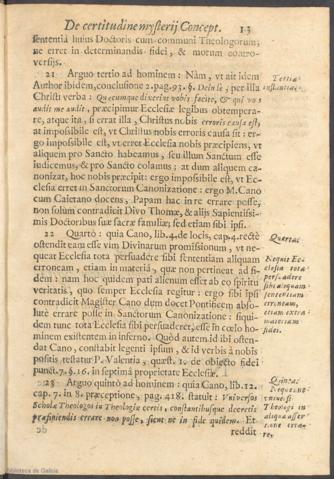 De certitudine mysterij Concept. 13
sententia huius Doctoris cum communi Theologorum;
ne erret in determinandis fidei, & morum contro-
versijs.
21 Arguo tertio ad hominem: Nàm, vt ait idem
Author ibidem, conclusione 2. pag. 93. §. Deinde, per illa
Christi verba: Quæcumque dixerint vobis facite, & qui vos
audit me audit, præcipimur Ecclesiæ legibus obtempera-
re, atque ita, si errat illa, Christus nobis erroris causa est,
at imposibile est, vt Christus nobis erroris causa sit: er-
go imposibile est, vt erret Ecclesia nobis præcipiens, vt
aliquem pro Sancto habeamus, seu illum Sanctum esse
iudicemus, & pro Sancto colamus; at dum aliquem ca-
nonizat, hoc nobis præcipit: ergo imposibile est, vt Ec-
clesia erret in Sanctorum Canonizatione: ergo M. Cano
cum Caietano docens, Papam hac in re errare posse,
non solùm contradicit Divo Thomæ, & alijs Sapientissi-
mis Doctoribus suæ sacræ familiæ; sed etiam sibi ipsi.
22 Quartò: quia Cano, lib. 4. de locis, cap. 4. rectè
ostendit eam esse vim Divinarum promissionum, vt ne-
queat Ecclesia tota persuadere sibi sententiam aliquam
erroneam, etiam in materia, quæ non pertineat ad fi-
dem: nam hoc quidem pati alienum esset ab eo spiritu
veritatis, quo semper Ecclesia regitur: ergo sibi ipsi
contradicit Magister Cano dum docet Pontificem abso-
lutè errare posse in Sanctorum Canonizatione: siqui-
dem tunc tota Ecclesia sibi persuaderet, esse in cœlo ho-
minem existentem in inferno. Quòd autem id ibi osten-
dat Cano, constabit legenti ipsum, & id verbis à nobis
positis testatur P. Valentia, quæst. 1. de obiecto fidei
punct. 7. §. 16. in septima proprietate Ecclesiæ.
23 Arguo quintò ad hominem: quia Cano, lib. 12.
cap. 7. in 8. præceptione, pag. 418. statuit: Vniversos
Scholæ Theologos in Theologia certis, constantibusque decretis
præfiniendis errare non posse, sicut ne in fide quidem. Et
reddit
Tertia
instantia.
Quarta:
Nequit Ec-
clesia tota
persuadere
sibi aliquam
sententiam
erroneam,
etiam extra
materiam
fidei.
Quinta:
Theologi in
re,
Biblioteca de Galicia